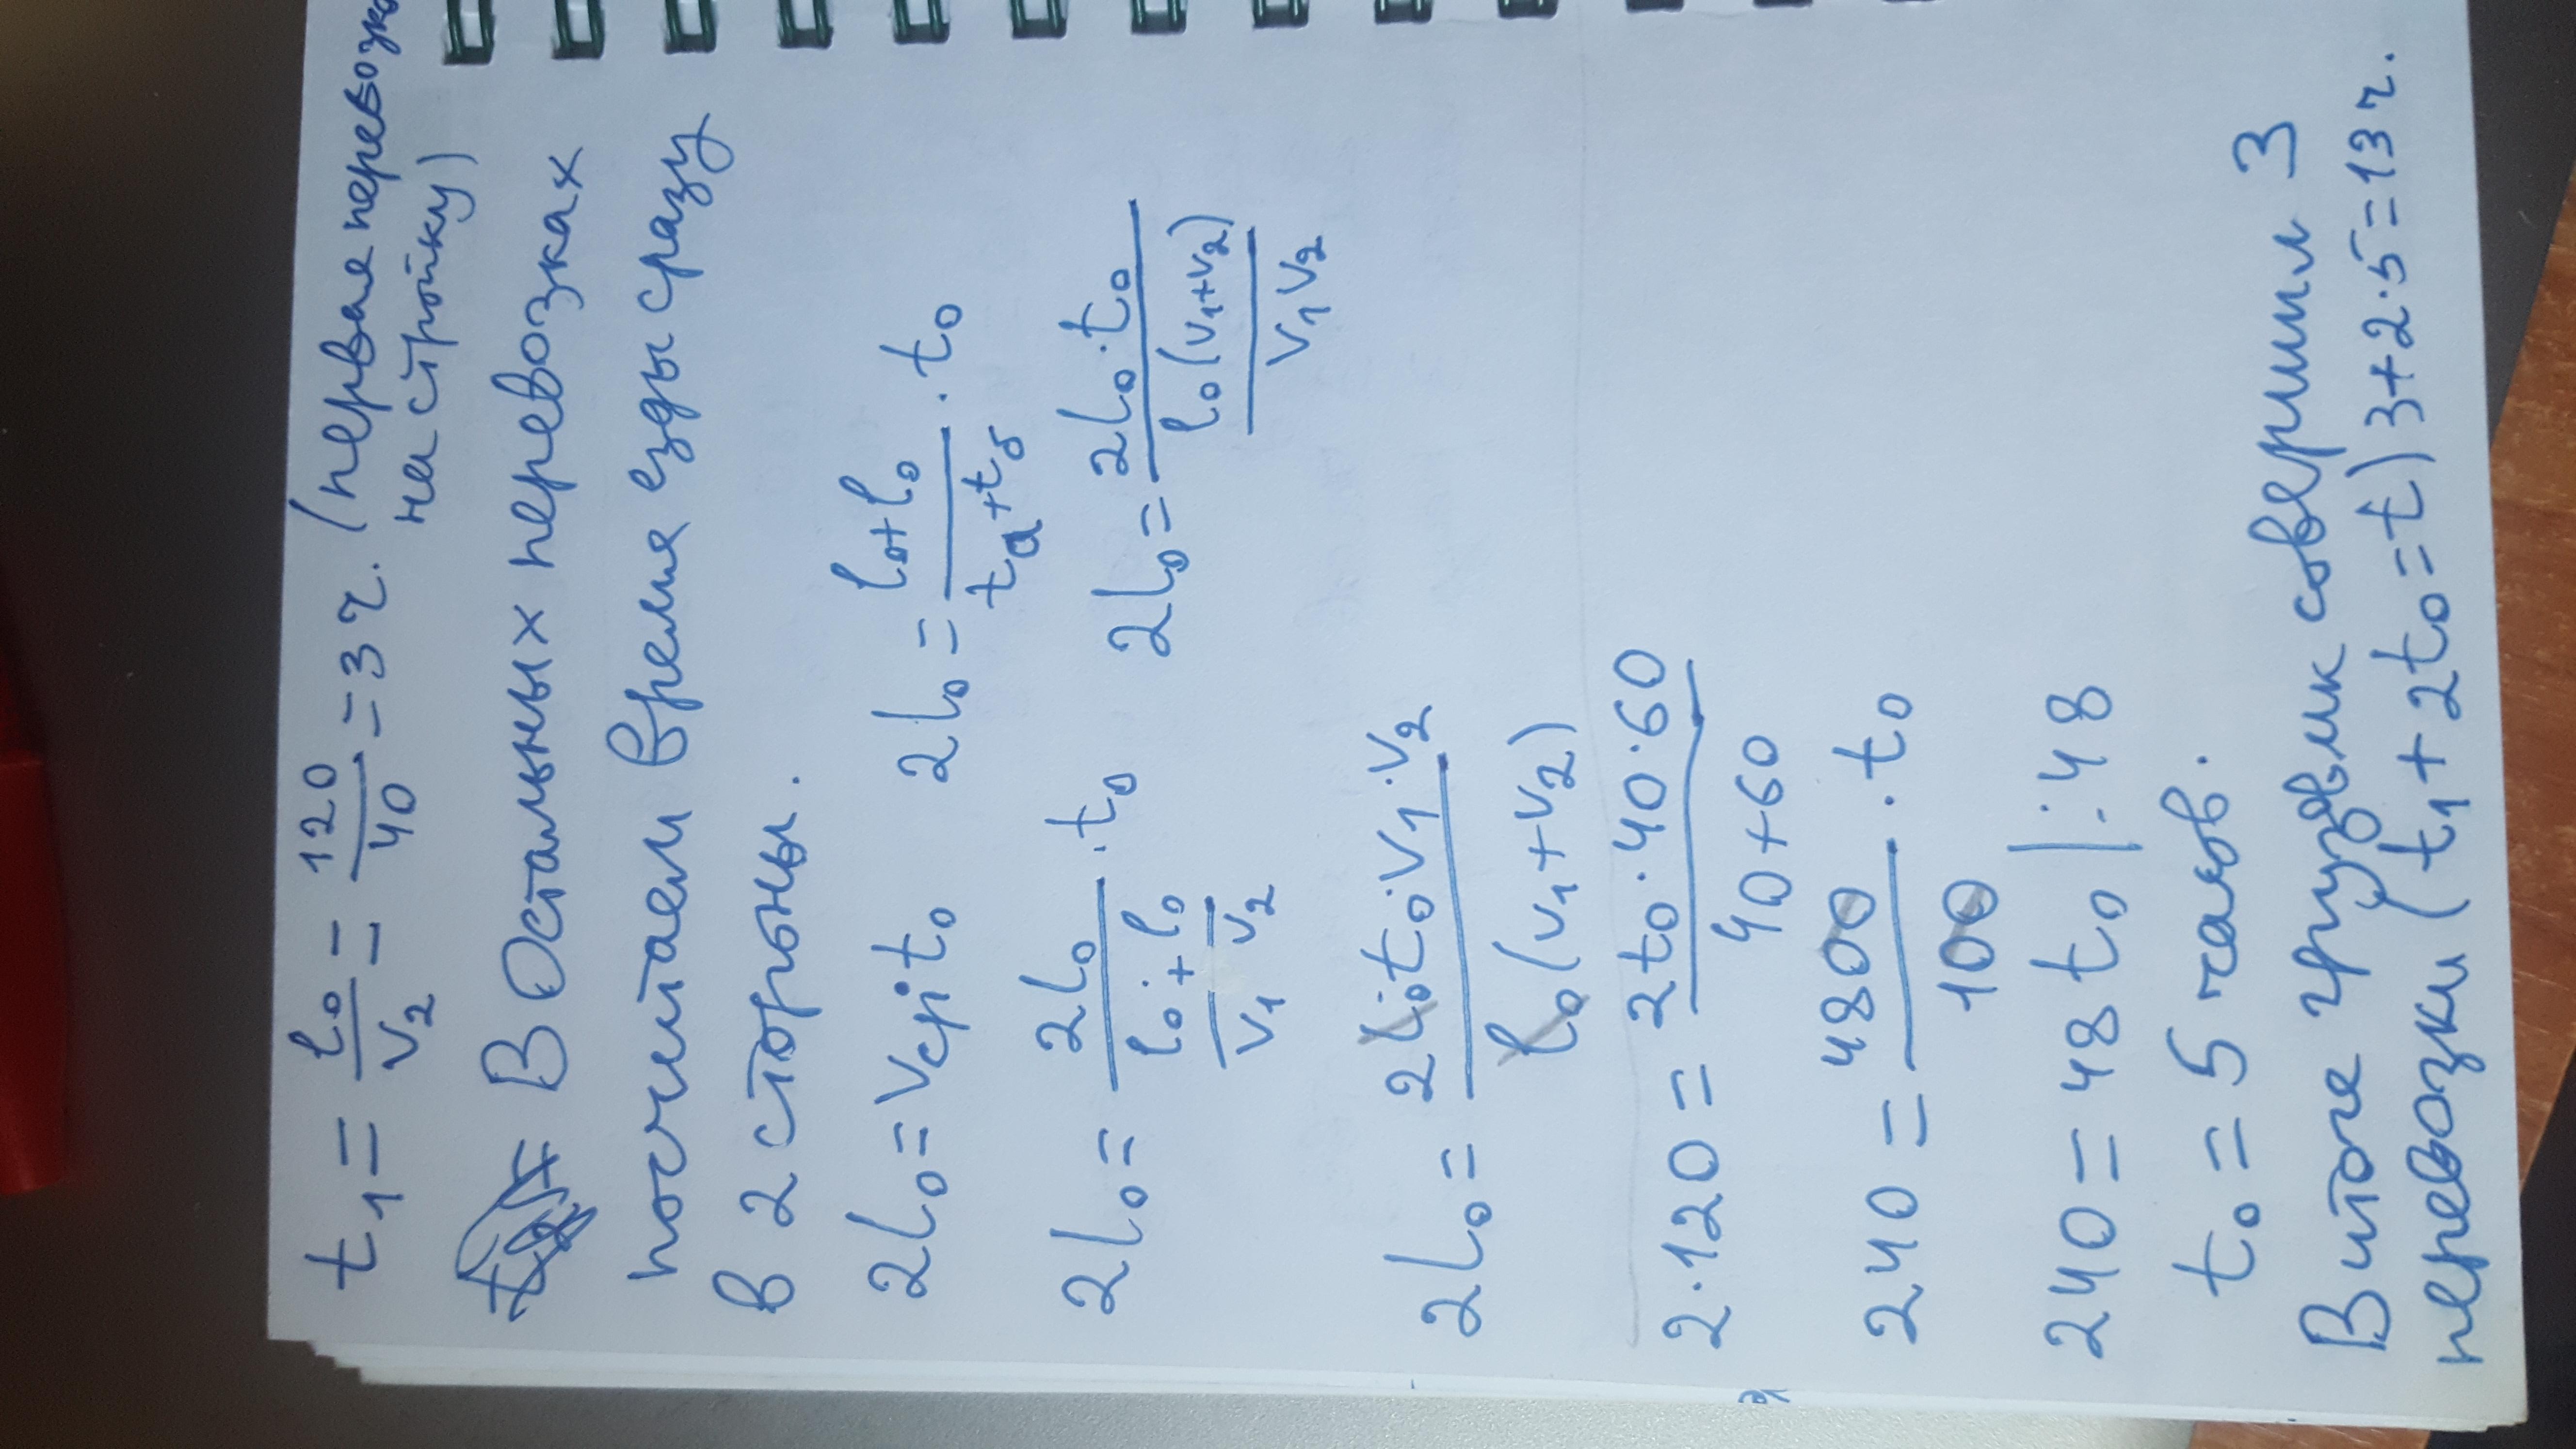 t₁ = l₀/v₂ = 120/40 = 3 ч. (первая перевозка
на стройку)
В остальных перевозках
посчитаем время езды сразу
в 2 стороны.
2l₀ = vср·t₀    2l₀ = (l₀+l₀)/(tα+tδ) · t₀
2l₀ = 2l₀/(l₀/v₁ + l₀/v₂) · t₀    2l₀ = 2l₀·t₀/(l₀(v₁+v₂)/v₁v₂)
2l₀ = 2l₀·t₀·v₁·v₂/l₀(v₁+v₂)
2·120 = 2t₀·40·60/40+60
240 = 4800/100 · t₀
240 = 48t₀ |:48
t₀ = 5 часов.
В итоге грузовик совершил 3
перевозки (t₁+2t₀=t) 3+2·5=13 ч.